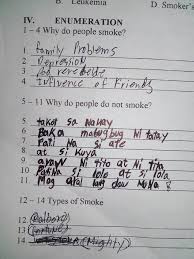 B Leukemia D Smoker's
IV. ENUMERATION
1 – 4 Why do people smoke?
1 Family Problems
2 Depression
3
4 Influence of Friends
5 – 11 Why do people do not smoke?
5 takot sa Nanay
6 Baka mabugbug Ni tatay
7 Pati Na si ate
8 at si Kuya
9 ayaw Ni tito at Ni tita
10 Pagalit si lolo at si lola
11 Mag aral lang daw MuNa
12 – 14 Types of Smoke
12
13 (Fortune)
14 (Mighty)